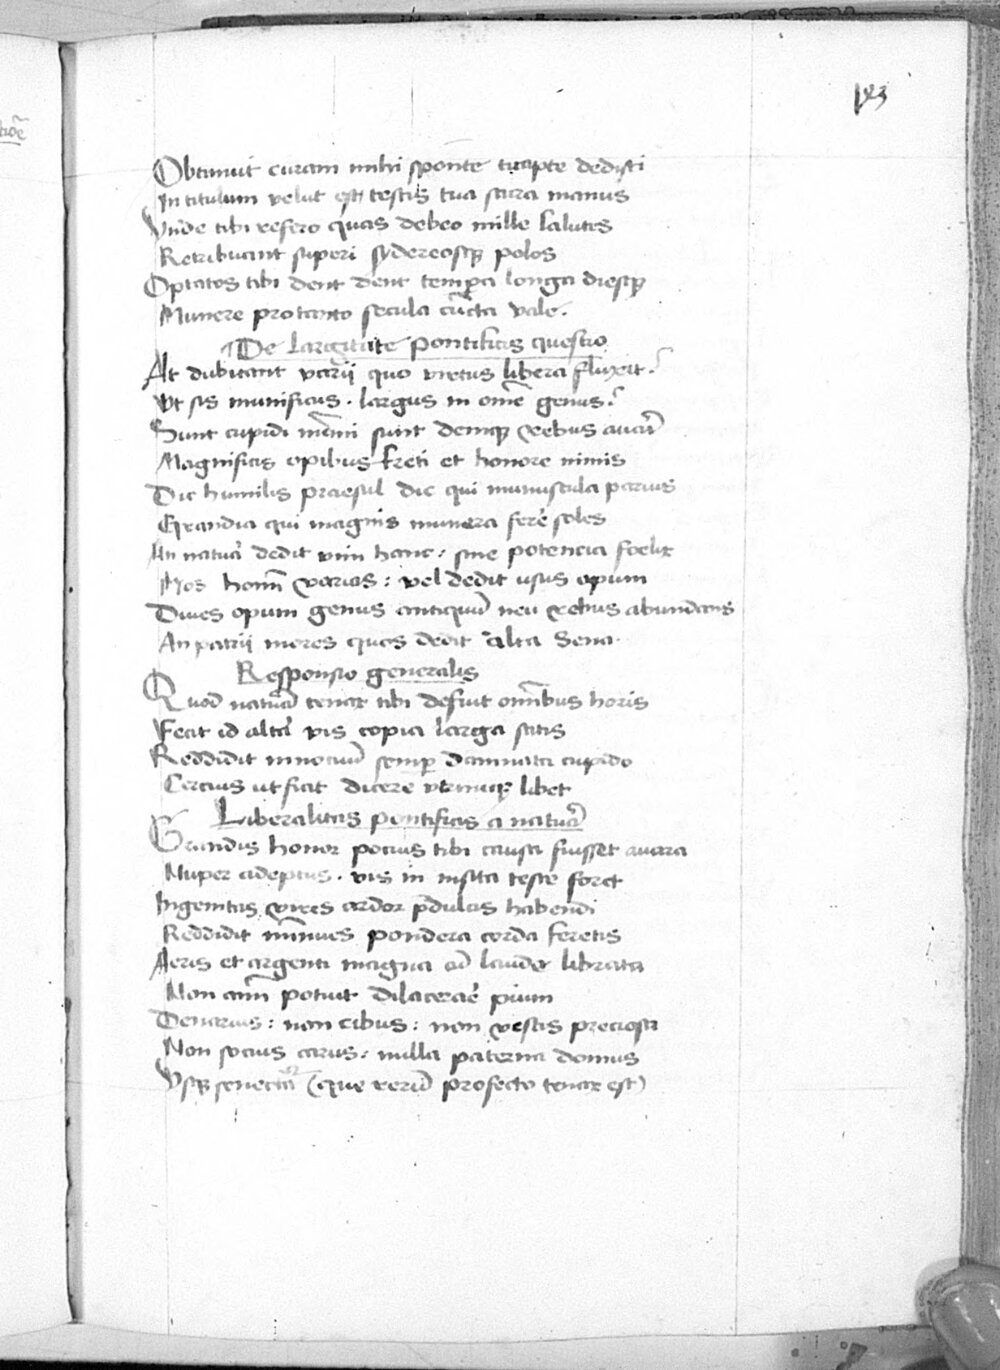 193
Obtinuit curam mihi sponte tuapte dedisti
In titulum velut est testis tua sacra manus
Vnde tibi refero quas debeo mille salutes
Retribuant superi sydereosq̃ polos
Optatos tibi dent dent tempora longa diesq̃
Munere pro tanto secula cũcta vale.
De Largitate pontificis questio
At dubitant varij quo virtus libera fluxit.
Vt sis munificus. largus in om̃e genus.
Sunt cupidi nim̃i sunt deniq̃ rebus auari
Magnificis opibus freti et honore nimis
Dic humilis praesul dic qui munuscula paruis
Grandia qui magnis munera ferre soles
An natura dedit vim hanc: sine potencia foelix
Mos hom̃ varias: vel dedit usus opum
Diues opum genus antiquũ neu rebus abundans
An patrij mores quos dedit alta Sena.
Responsio generalis
Quod natura tenax tibi defuit om̃ibus horis
Fecit id alta vis copia larga satis
Reddidit innocuũ semp̱ damnata cupido
Cercius ut fiat dicere utrumq̃ libet
Liberalitas pontificis a natura
Grandis honor pocius tibi causa fuisset auara
Nuper adeptus. vis in nisita teste foret
Ingenitas vires ardor p̃dulcis habendi
Reddidit pondera corda feretis
Aeris et argenti magna cũ laude librata
Non potuit dilacerare pium
Denarius: non cibus: non vestis preciosa
Non socius carus: nulla paterna domus
Vsq̃ senecta (que rerũ profecto tenax est)